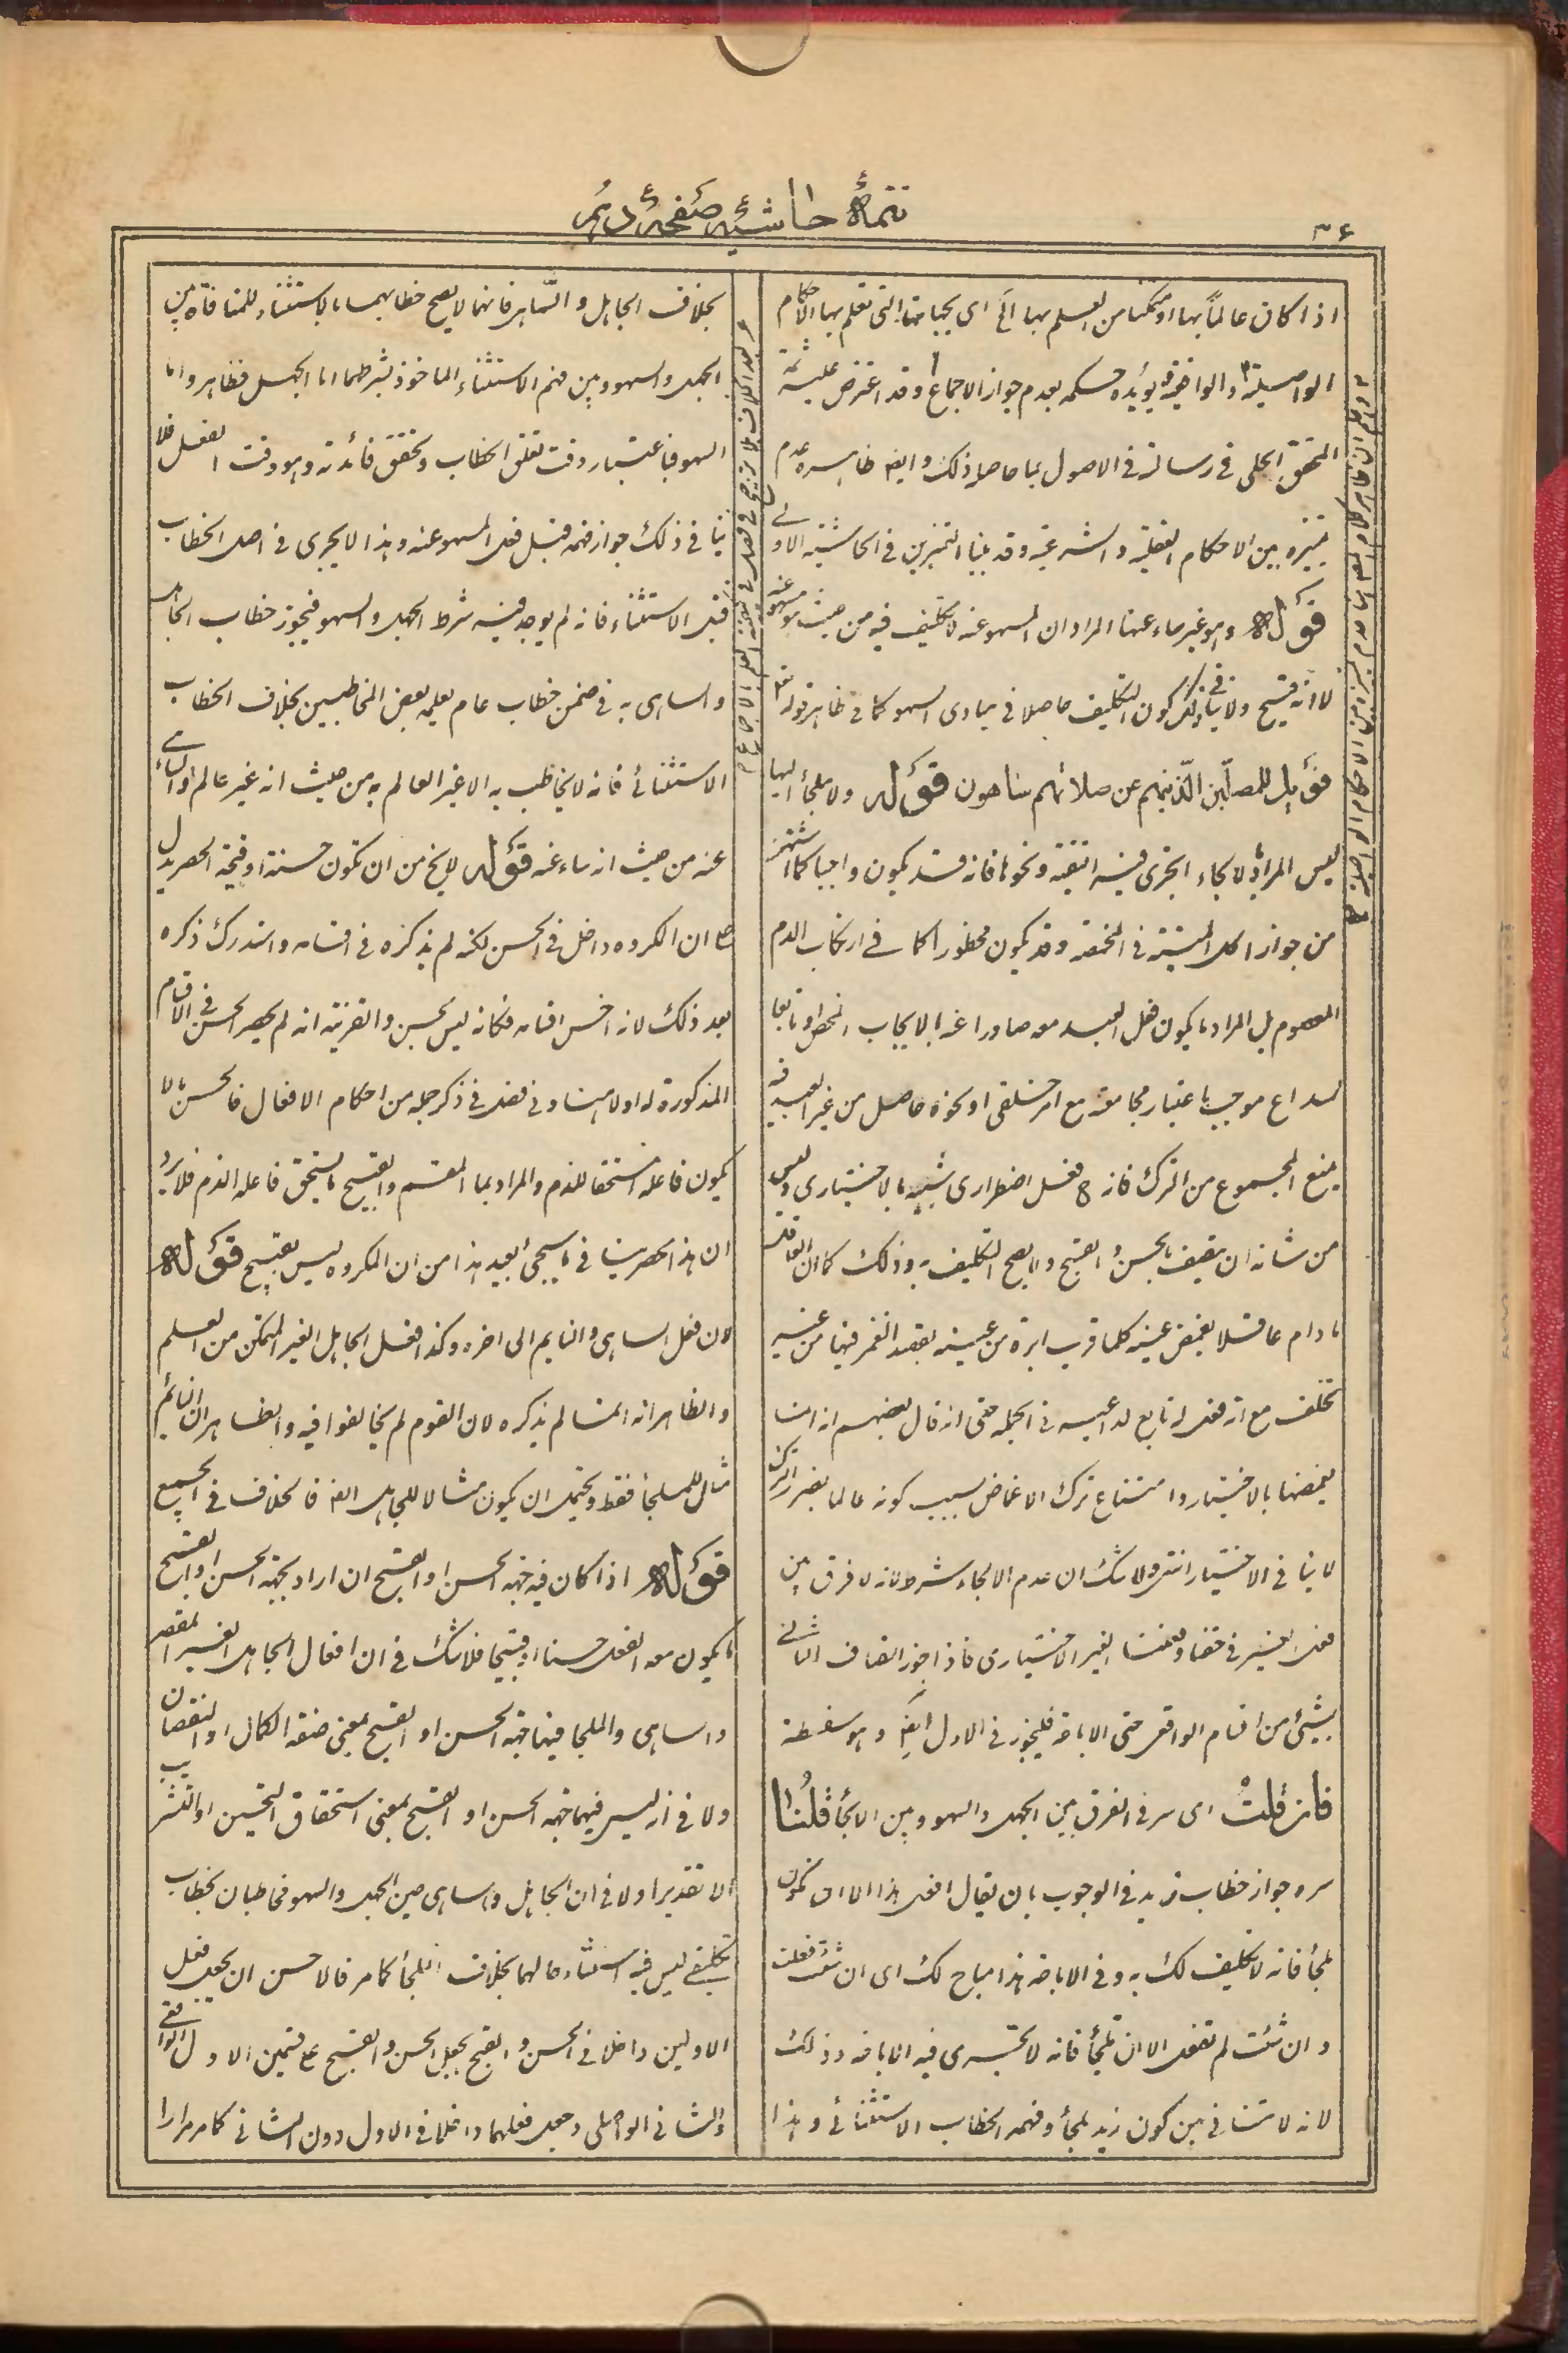 تتمهٔ حاشیهٔ صفحهٔ دیگر
۳۶
اذا كان عالماً بها او متمكنا من العلم بها الى اى بجهاتها التى تعلم بها الاحكام
الواصلية والواقعية ويؤيده حكمه بعدم جواز الاجماع وقد اعترض عليه ثمة
المحقق الحلى فى رسالته فى الاصول بما حاصله ذلك وايضا ظاهره عدم
تميزه بين الاحكام العقلية والشرعية وقد بينا التميزين فى الحاشية الاولى
قوله وهو غير ساه عنها المراد ان المسهو عنه لا تكليف فيه من حيث هو مسهو عنه
لانه قبيح ولا ينافى ذلك كون التكليف حاصلا فى مبادى السهو كما فى ظاهر قوله تعالى
فويل للمصلين الذينهم عن صلاتهم ساهون قوله ولا ملجأ اليها
ليس المراد بالالجاء الجزئى فيه التقية ونحوها فانه قد يكون واجبا كما اشتهر
من جواز اكل الميتة فى المخمصة وقد يكون محظورا كما فى ارتكاب الدم
المعصوم بل المراد ما يكون فعل العبد معه صادرا عنه بالايجاب المحض او تابعا
لداع موجب باعتبار مجامعته مع امر خلقى او نحوه حاصل من غير العبد فيه
يمنع المجموع من الترك فانه ح فعل اضطرارى شبيه بالاختيارى وليس
من شانه ان يتصف بالحسن والقبح ولا يصح التكليف به وذلك كما ان العاقل
ما دام عاقلا يغمض عينه كلما قرب ابرة من عينه بقصد الغمز فيها من غير
تخلف مع انه فعل له تابع لداعيه فى الجملة حتى انه قال بعضهم انه انما
يغمضها بالاختيار وامتناع ترك الاغماض بسبب كونه عالما بضرر الترك
لا ينافى الاختيار انتهى ولا شك ان عدم الالجاء شرط لانه لا فرق بين
فعل الغير فى حقنا وفعلنا الغير الاختيارى فاذا جوز اتصاف الثانى
بشئ من اقسام الواقعى حتى الاباحة فليجوز فى الاول ايضا وهو سفسطة
فان قلت اى سر فى الفرق بين الجهل والسهو وبين الالجأ قلنا
سره جواز خطاب زيد فى الوجوب بان يقال افعل هذا الا ان تكون
ملجأ فانه لا تكليف لك به وفى الاباحة هذا مباح لك اى ان شئت فعلت
وان شئت لم تفعل الا ان تلجأ فانه لا تجرى فيه الاباحة وذلك
لانه لا تنافى بين كون زيد ملجأ وفهمه الخطاب الاستثنائى وهذا
بخلاف الجاهل والساهى فانهما لا يصح خطابهما بالاستثناء للمنافاة بين
الجهل والسهو وبين فهم الاستثناء الماخوذ بشرطهما اما الجهل فظاهر واما
السهو فباعتبار وقت تعلق الخطاب وتحقق فائدته وهو وقت الفعل فلا
ينافى ذلك جواز فهمه قبل فعل المسهو عنه وهذا لا يجرى فى اصل الخطاب
قبل الاستثناء فانه لم يوجد فيه شرط الجهل والسهو فيجوز خطاب الجاهل
والساهى به فى ضمن خطاب عام يعلمه بعض المخاطبين بخلاف الخطاب
الاستثنائى فانه لا يخاطب به الا غير العالم به من حيث انه غير عالم او الساهى
عنه من حيث انه ساه عنه قوله لا يخ من ان تكون حسنة او قبيحة الحصر يدل
على ان المكروه داخل فى الحسن لكنه لم يذكره فى اقسامه واستدرك ذكره
بعد ذلك لانه اخس اقسامه فكانه ليس بحسن والقرينة انه لم يحصر الحسن فى الاقسام
المذكورة له اولا هنا وفى فصل فى ذكر جملة من احكام الافعال فالحسن ما لا
يكون فاعله مستحقا للذم والمراد بما المقسم والقبيح ما يستحق فاعله الذم فلا يرد
ان هذا الحصر ينافى ما سيجئ بعيد هذا من ان المكروه ليس بقبيح قوله
لان فعل الساهى والنايم الى اخره وكذا فعل الجاهل الغير المتمكن من العلم
والظاهر انه انما لم يذكره لان القوم لم يخالفوا فيه والظاهر ان النائم
مثال للملجأ فقط ويحتمل ان يكون مثالا للجاهل ايضا فالخلاف فى الجميع
قوله اذا كان فيه جهة الحسن او القبح ان اراد بجهة الحسن او القبح
ما يكون معه الفعل حسنا او قبيحا فلا شك فى ان افعال الجاهل الغير المقصر
والساهى والملجا فيها جهة الحسن او القبح بمعنى صفة الكمال او النقصان
ولا فى انه ليس فيهما جهة الحسن او القبح بمعنى استحقاق التحسين او التثريب
الا تقديرا ولا فى ان الجاهل والساهى حين الجهل والسهو مخاطبان بخطاب
تكليفى ليس فيه استثناء حالهما بخلاف الملجأ كما مر فالاحسن ان يجعل فعل
الاولين داخلا فى الحسن والقبح بجعل الحسن والقبح على قسمين الاول الواقعى
والثانى الواصلى وجعل فعلهما داخلا فى الاول دون الثانى كما مر مرارا